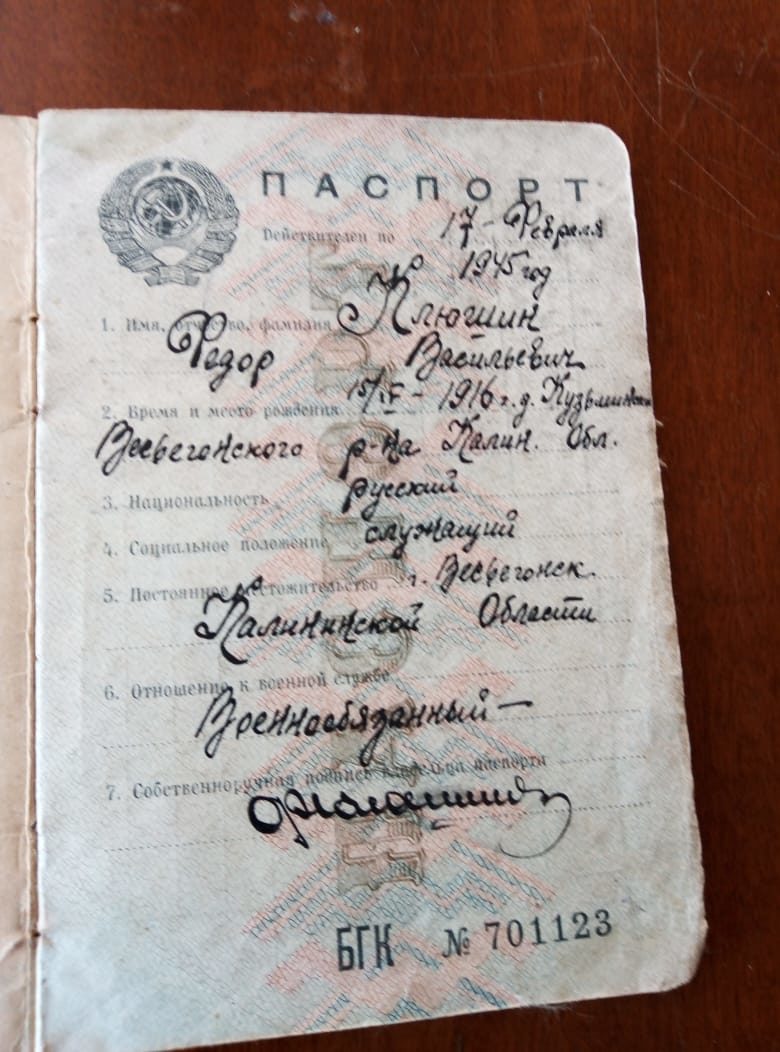 ПАСПОРТ
Действителен по 17 – Февраля
1945 год
1. Имя, отчество, фамилия Клюшин
Федор Васильевич
2. Время и место рождения 1916 г. д.
Весьегонского р-на Калин. Обл.
3. Национальность русский
4. Социальное положение служащий
5. Постоянное местожительство г. Весьегонск.
Калининской Области
6. Отношение к военной службе
Военнообязанный –
7. Собственноручная подпись владельца паспорта
БГК № 701123